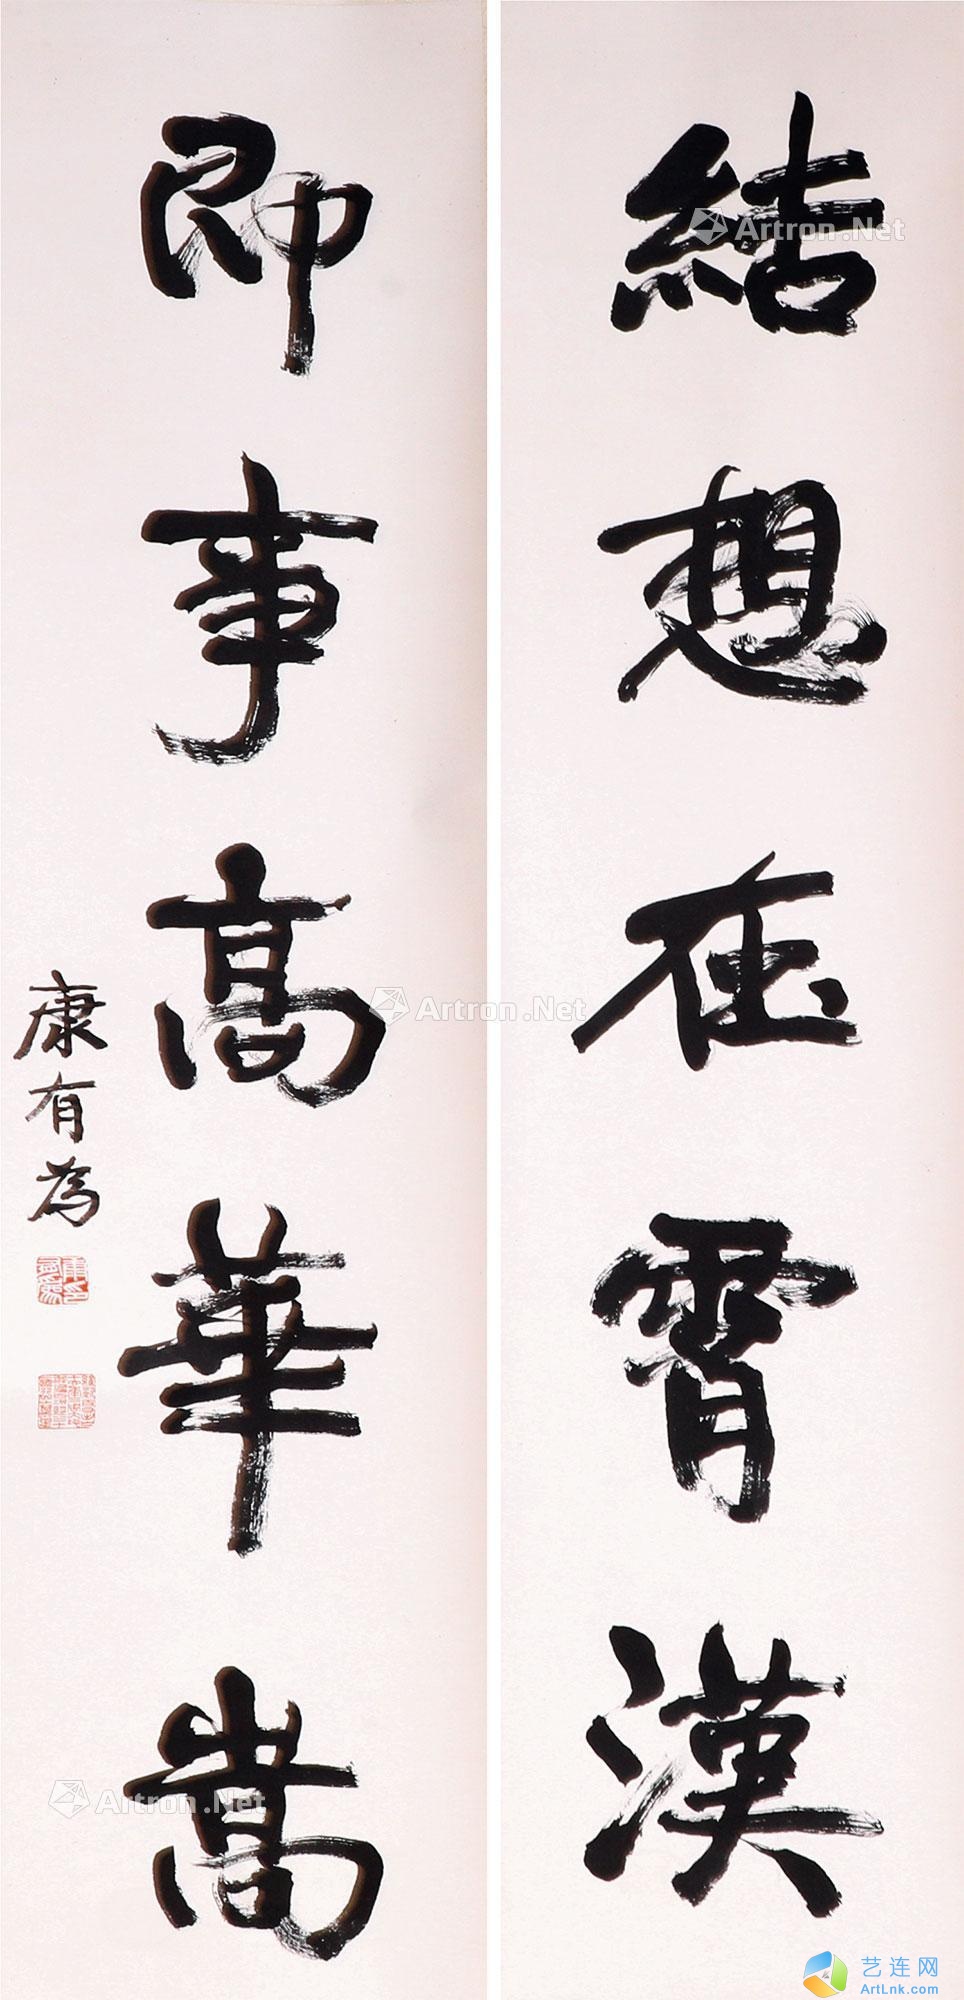 結想在霄漢
即事高華嵩
康有為
Artron.Net
Artron.Net
Artron.Net
艺连网
ArtLnk.com